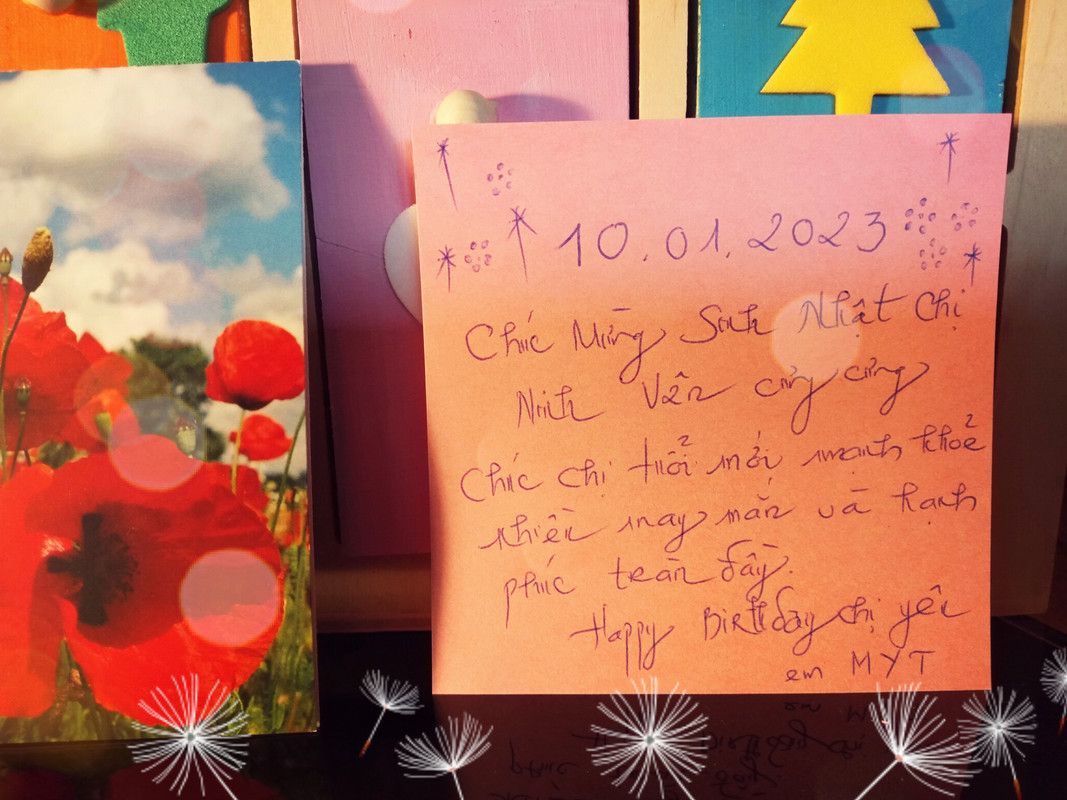 10.01.2023
Chúc Mừng Sinh Nhật Chị
Ninh Vân cưng cưng
Chúc chị tuổi mới mạnh khoẻ
nhiều may mắn và hạnh
phúc tràn đầy.
Happy Birthday chị yêu
em MYT